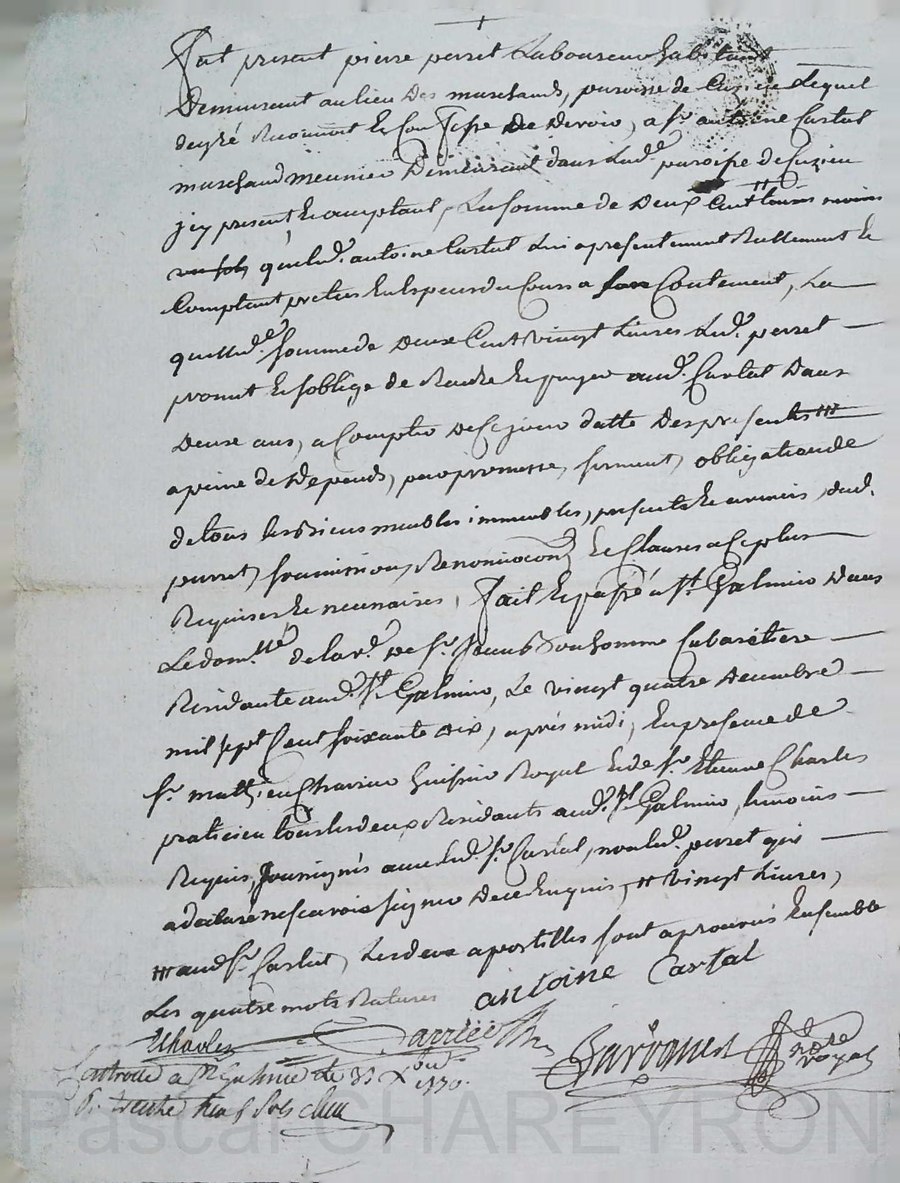 Fut present pierre perret Laboureur habitant
Demeurant au lieu des marchands, paroisse de Cuzieu Lequel
de gré Reconnoit Et Confesse De Devoir, a Sr. antoine Cartal
marchand meunier Demeurant dans Lad.e paroisse de Cuzieu
jcy present Et acceptant, La somme de Deux Cent
queled. antoine Cartal Lui a presentement Reellement Et
Comptant pretées En Especes du Cours a Contentement, La
quelled.e somme de Deux Cent vingt Livres Led. perret
promet Et s'oblige de Rendre Et payer aud. Cartal Dans
Deux ans, a Compter De Ce jour datte Des presentes #
a peine de Depends, par promesse, serment, obligation de
de tous ses Biens meubles immeubles, presents Et avenir, dud.
perret, soumission, Renonciaõns Et Clauses a Ce plus
Requises Et necessaires, Fait Et passé a St. Galmier Dans
Le dom.lle de la v.e De Sr. Bonhomme Cabaretiere
Residante aud. St. Galmier, Le vingt quatre Decembre
mil sept Cent soixante dix, aprés midi, En presence de
Sr. mathieu Charrier huissier Royal Et de Sr. Etienne Charles
praticien tous les deux Residants aud. St. Galmier, temoins
Requis, soussignés avec led. Sr. Cartal, non led. perret qui
a declaré ne scavoir signer De ce Enquis, # vingt Livres,
# aud Sr. Cartal, Les deux apostilles sont aprouvés Ensemble
Les quatre mots Ratures
antoine Cartal
Charles
nore royal
Controllé a St Galmier le 31 Xbre 1770.
Pascal CHAREYRON